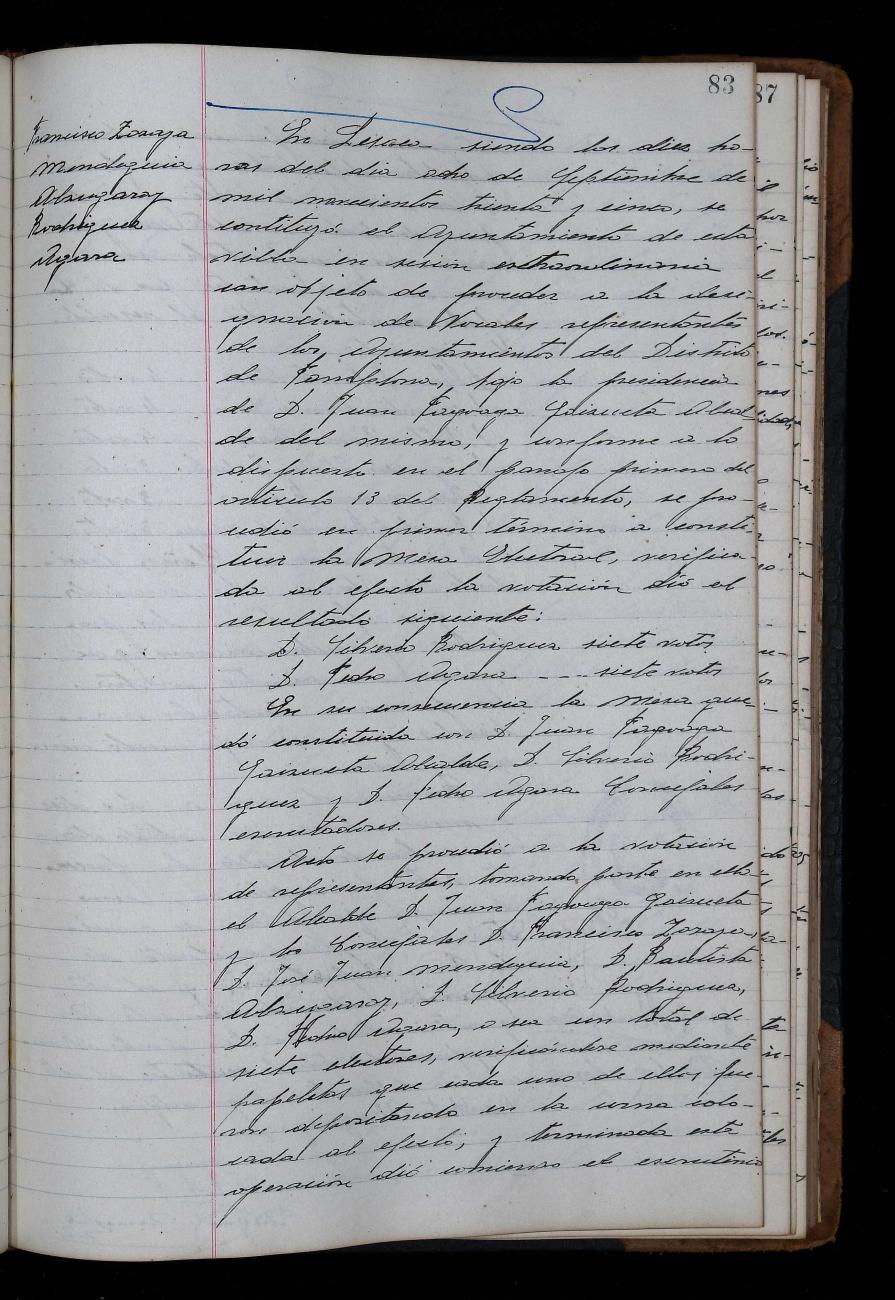 83
87
Francisco Zozaya
Mendeguia
Alzugaray
Rodriguez
Agara
En Lesaca siendo las diez ho-
ras del dia ocho de Septiembre de
mil novecientos treinta y cinco, se
contituyó el Ayuntamiento de esta
villa en sesión extraordinaria
con objeto de proceder a la desi-
gnación de Vocales representantes
de los Ayuntamientos del Distrito
de Pamplona, bajo la presidencia
de D. Juan Fagoaga Gaizueta Alcal-
de del mismo, y conforme a lo
dispuesto en el parrafo primero del
articulo 13 del Reglamento, se pro-
cedió en primer término a consti-
tuir la Mesa Electoral, verifica-
da al efecto la votación dió el
resultado siguiente:
D. Silverio Rodriguez siete votos
D. Pedro Agara --- siete votos
En su consecuencia la Mesa que-
dó constituida con D. Juan Fagoaga
Gaizueta Alcalde, D. Silverio Rodri-
guez y D. Pedro Agara Concejales
escrutadores.
Acto se procedió a la votación
de representantes, tomando parte en ella
el Alcalde D. Juan Fagoaga Gaizueta
y los Concejales D. Francisco Zozaya,
D. José Juan Mendeguia, D. Bautista
Alzugaray, D. Silverio Rodriguez,
D. Pedro Agara, o sea un total de
siete electores, verificándose mediante
papeletas que cada uno de ellos fue-
ron depositando en la urna colo-
cada al efecto; y terminada esta
operación dió comienzo el escrutinio